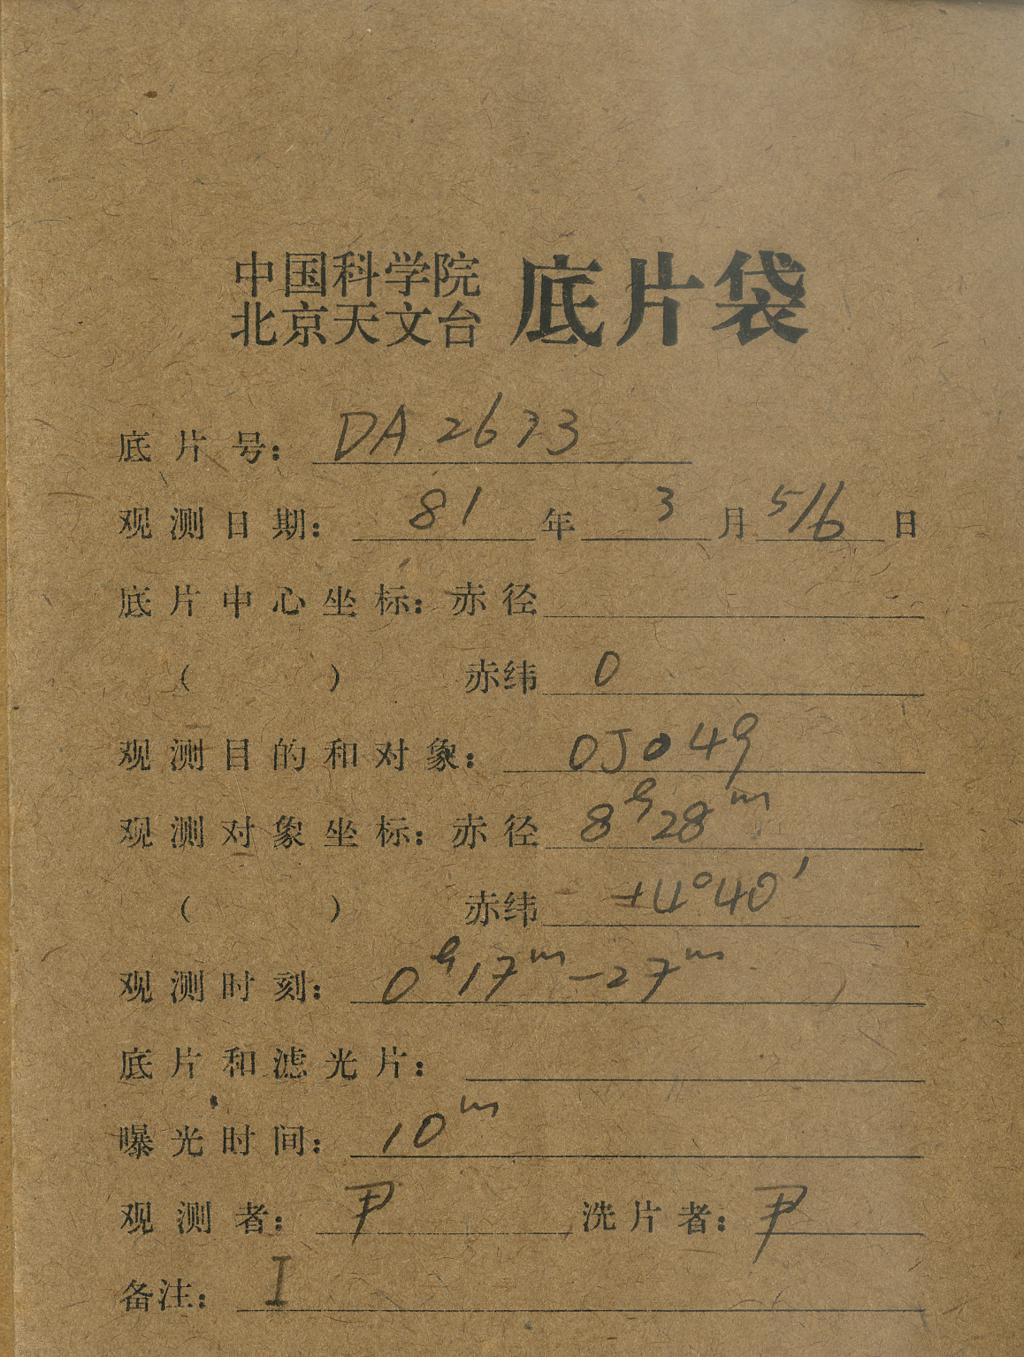 中国科学院
北京天文台 底片袋
底片号: DA 2673
观测日期: 81 年 3 月 5/6 日
底片中心坐标: 赤径
( ) 赤纬 0
观测目的和对象: OJ049
观测对象坐标: 赤径 8h28m
( ) 赤纬 +4°40′
观测时刻: 0h17m-27m
底片和滤光片:
曝光时间: 10m
观测者: 尹 洗片者: 尹
备注: I